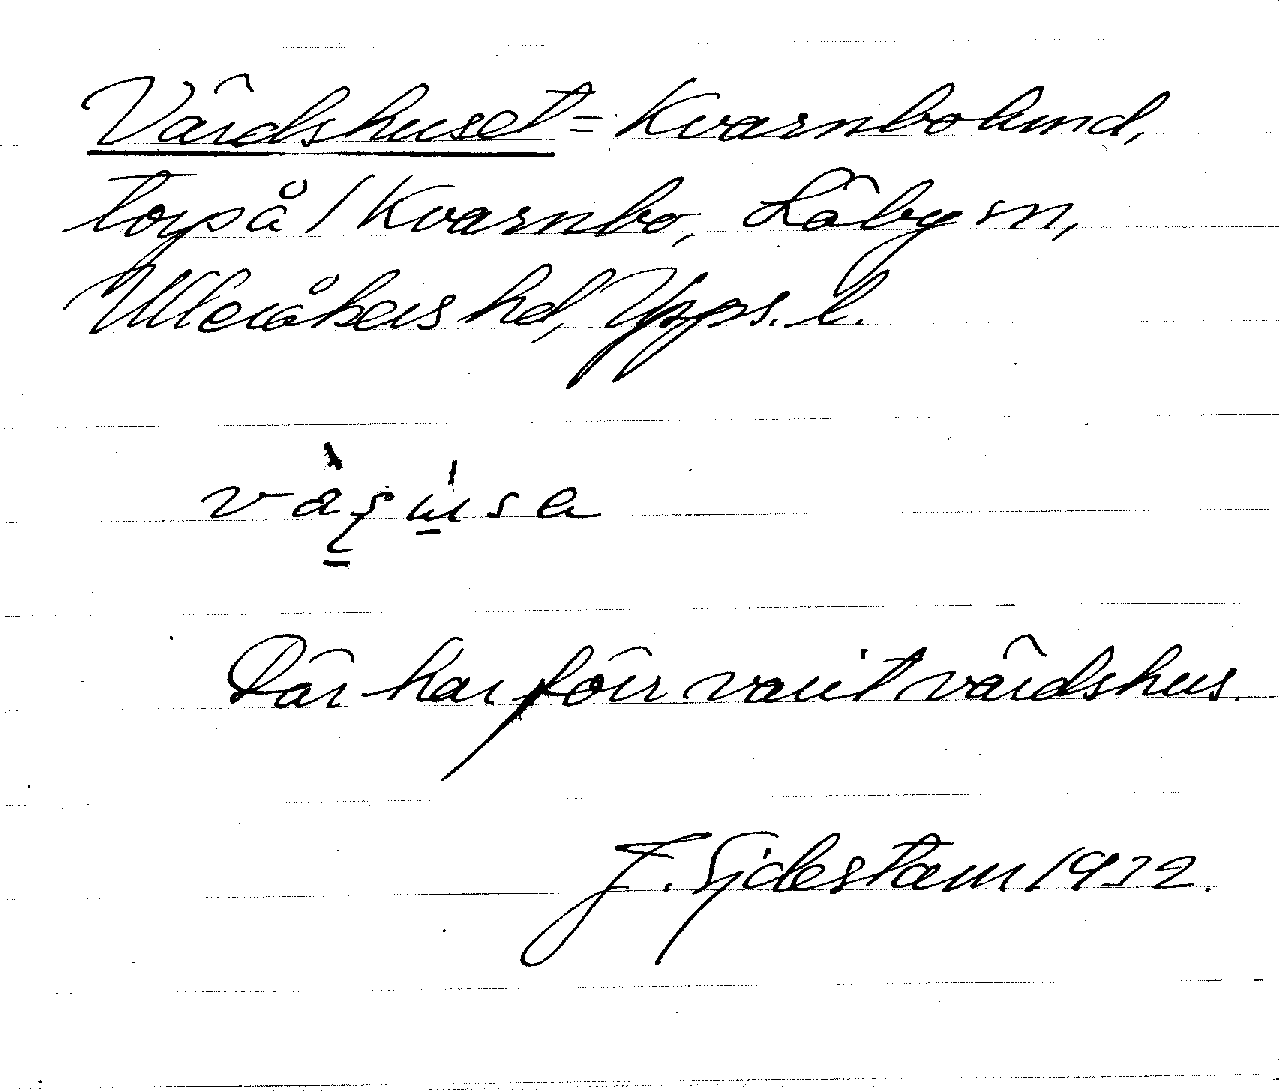 Värdshuset = Kvarnbolund,
torp å / Kvarnbo, Läby sn,
Ulleråkers hd, Upps. l.
Där har förr varit värdshus.
F. Sjdestam 1932.